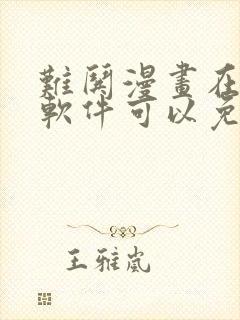 難鬩漫畫在
軟件可以免
王雅嵐